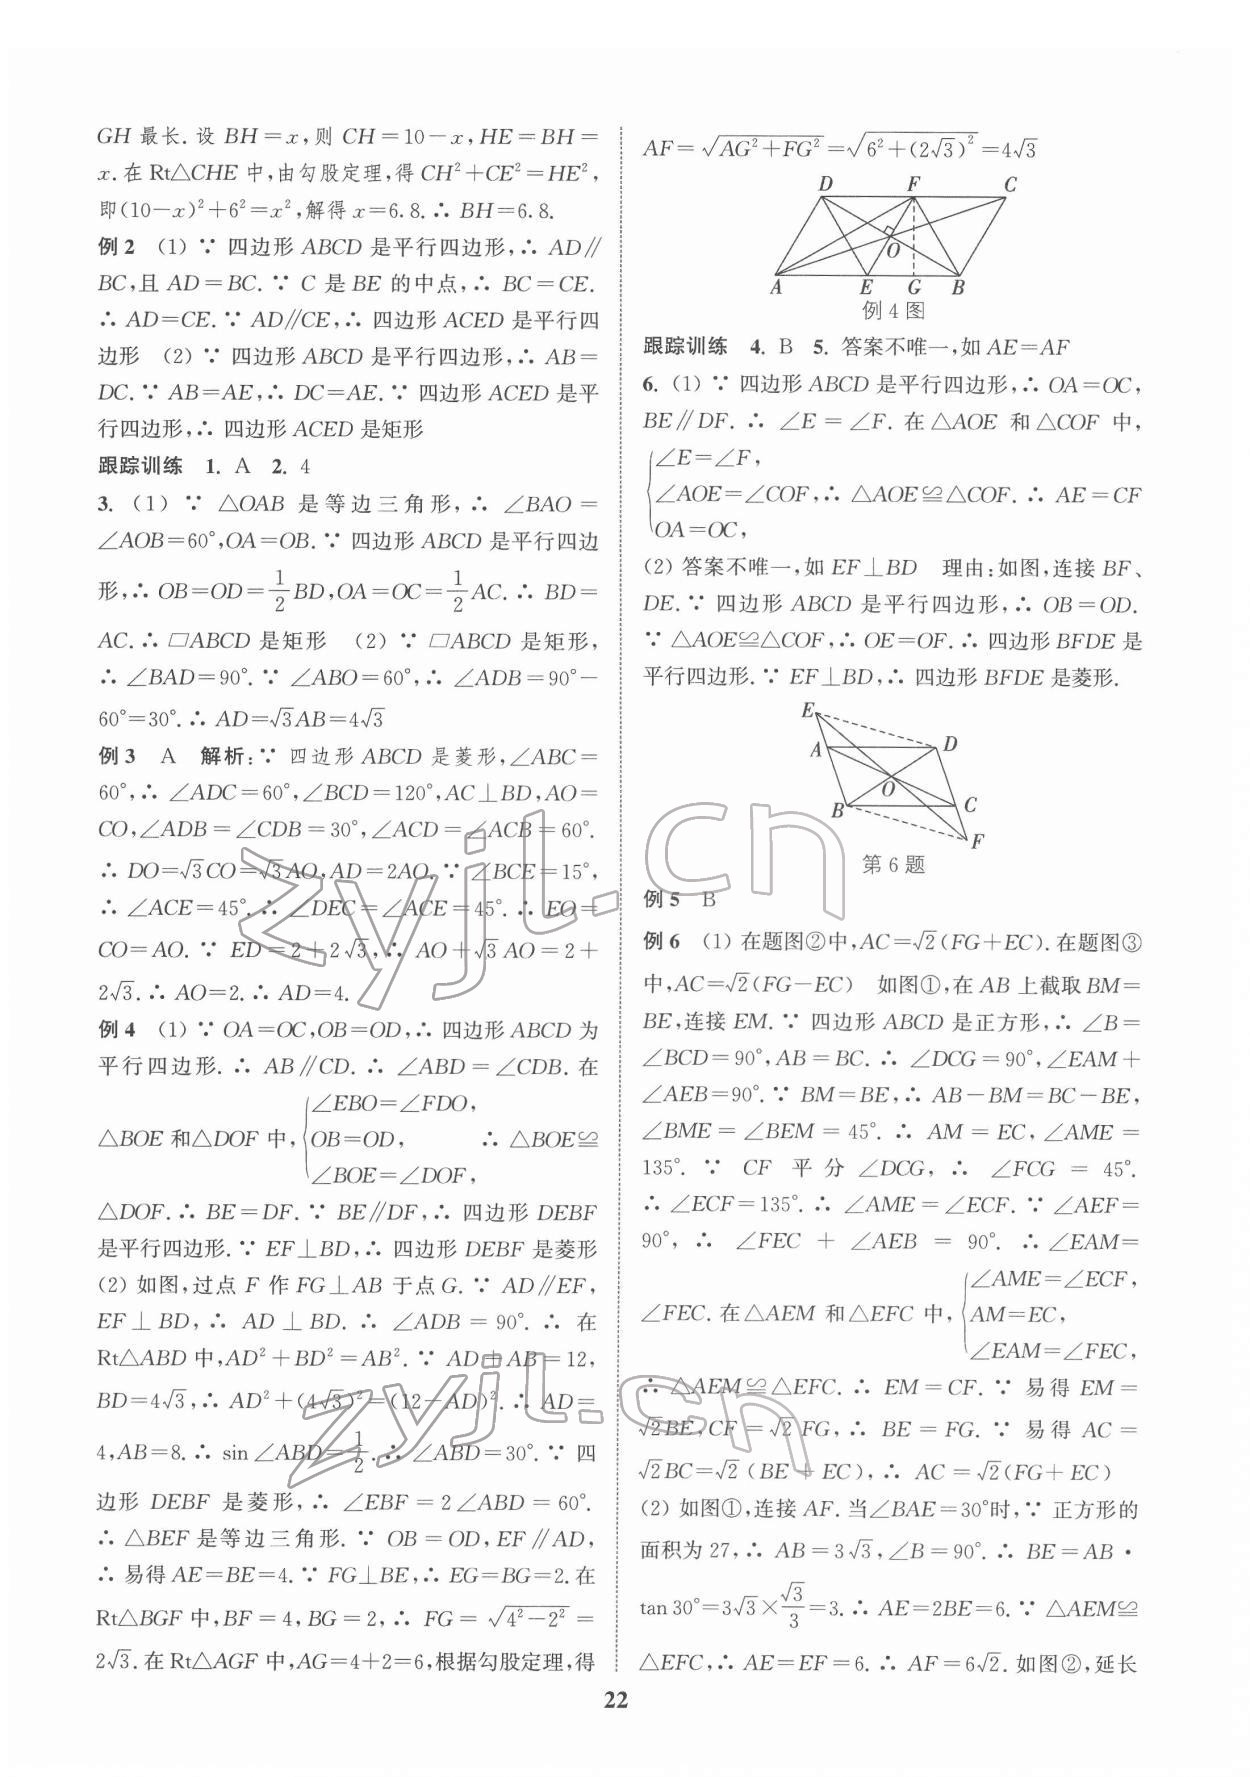 GH 最长. 设 BH=x,则 CH=10-x,HE=BH=
x. 在 Rt△CHE 中,由勾股定理,得 CH²+CE²=HE²,
即(10-x)²+6²=x²,解得 x=6.8. ∴ BH=6.8.
例2 (1) ∵ 四边形 ABCD 是平行四边形,∴ AD∥
BC,且 AD=BC. ∵ C 是 BE 的中点,∴ BC=CE.
∴ AD=CE. ∵ AD∥CE,∴ 四边形 ACED 是平行四
边形 (2) ∵ 四边形 ABCD 是平行四边形,∴ AB=
DC. ∵ AB=AE,∴ DC=AE. ∵ 四边形 ACED 是平
行四边形,∴ 四边形 ACED 是矩形
跟踪训练 1. A 2. 4
3. (1) ∵ △OAB 是等边三角形,∴ ∠BAO=
∠AOB=60°,OA=OB. ∵ 四边形 ABCD 是平行四边
形,∴ OB=OD=1/2BD,OA=OC=1/2AC. ∴ BD=
AC. ∴ ▱ABCD 是矩形 (2) ∵ ▱ABCD 是矩形,
∴ ∠BAD=90°. ∵ ∠ABO=60°,∴ ∠ADB=90°-
60°=30°. ∴ AD=√3AB=4√3
例3 A 解析:∵ 四边形 ABCD 是菱形,∠ABC=
60°,∴ ∠ADC=60°,∠BCD=120°,AC⊥BD,AO=
CO,∠ADB=∠CDB=30°,∠ACD=∠ACB=60°.
∴ DO=√3CO=√3AO,AD=2AO. ∵ ∠BCE=15°,
∴ ∠ACE=45°. ∴ ∠DEC=∠ACE=45°. ∴ EO=
CO=AO. ∵ ED=2+2√3,∴ AO+√3AO=2+
2√3. ∴ AO=2. ∴ AD=4.
例4 (1) ∵ OA=OC,OB=OD,∴ 四边形 ABCD 为
平行四边形. ∴ AB∥CD. ∴ ∠ABD=∠CDB. 在
∠EBO=∠FDO,
△BOE 和△DOF 中, OB=OD, ∴ △BOE≌
∠BOE=∠DOF,
△DOF. ∴ BE=DF. ∵ BE∥DF,∴ 四边形 DEBF
是平行四边形. ∵ EF⊥BD,∴ 四边形 DEBF 是菱形
(2) 如图,过点 F 作 FG⊥AB 于点 G. ∵ AD∥EF,
EF⊥BD,∴ AD⊥BD. ∴ ∠ADB=90°. ∴ 在
Rt△ABD 中,AD²+BD²=AB². ∵ AD+AB=12,
BD=4√3,∴ AD²+(4√3)²=(12-AD)². ∴ AD=
4,AB=8. ∴ sin∠ABD=1/2. ∴ ∠ABD=30°. ∵ 四
边形 DEBF 是菱形,∴ ∠EBF=2∠ABD=60°.
∴ △BEF 是等边三角形. ∵ OB=OD,EF∥AD,
∴ 易得 AE=BE=4. ∵ FG⊥BE,∴ EG=BG=2. 在
Rt△BGF 中,BF=4,BG=2,∴ FG=√(4²-2²)=
2√3. 在 Rt△AGF 中,AG=4+2=6,根据勾股定理,得
AF=√(AG²+FG²)=√(6²+(2√3)²)=4√3
D F C
O
A E G B
例4图
跟踪训练 4. B 5. 答案不唯一,如 AE=AF
6. (1) ∵ 四边形 ABCD 是平行四边形,∴ OA=OC,
BE∥DF. ∴ ∠E=∠F. 在△AOE 和△COF 中,
∠E=∠F,
∠AOE=∠COF,∴ △AOE≌△COF. ∴ AE=CF
OA=OC,
(2) 答案不唯一,如 EF⊥BD 理由:如图,连接 BF、
DE. ∵ 四边形 ABCD 是平行四边形,∴ OB=OD.
∵ △AOE≌△COF,∴ OE=OF. ∴ 四边形 BFDE 是
平行四边形. ∵ EF⊥BD,∴ 四边形 BFDE 是菱形.
E
A D
O
B C
F
第6题
例5 B
例6 (1) 在题图②中,AC=√2(FG+EC). 在题图③
中,AC=√2(FG-EC) 如图①,在 AB 上截取 BM=
BE,连接 EM. ∵ 四边形 ABCD 是正方形,∴ ∠B=
∠BCD=90°,AB=BC. ∴ ∠DCG=90°,∠EAM+
∠AEB=90°. ∵ BM=BE,∴ AB-BM=BC-BE,
∠BME=∠BEM=45°. ∴ AM=EC,∠AME=
135°. ∵ CF 平分∠DCG,∴ ∠FCG=45°.
∴ ∠ECF=135°. ∴ ∠AME=∠ECF. ∵ ∠AEF=
90°,∴ ∠FEC+∠AEB=90°. ∴ ∠EAM=
∠AME=∠ECF,
∠FEC. 在△AEM 和△EFC 中, AM=EC,
∠EAM=∠FEC,
∴ △AEM≌△EFC. ∴ EM=CF. ∵ 易得 EM=
√2BE,CF=√2FG,∴ BE=FG. ∵ 易得 AC=
√2BC=√2(BE+EC),∴ AC=√2(FG+EC)
(2) 如图①,连接 AF. 当∠BAE=30°时,∵ 正方形的
面积为 27,∴ AB=3√3,∠B=90°. ∴ BE=AB·
tan30°=3√3×√3/3=3. ∴ AE=2BE=6. ∵ △AEM≌
△EFC,∴ AE=EF=6. ∴ AF=6√2. 如图②,延长
22
zyjl.cn
zyjl.cn